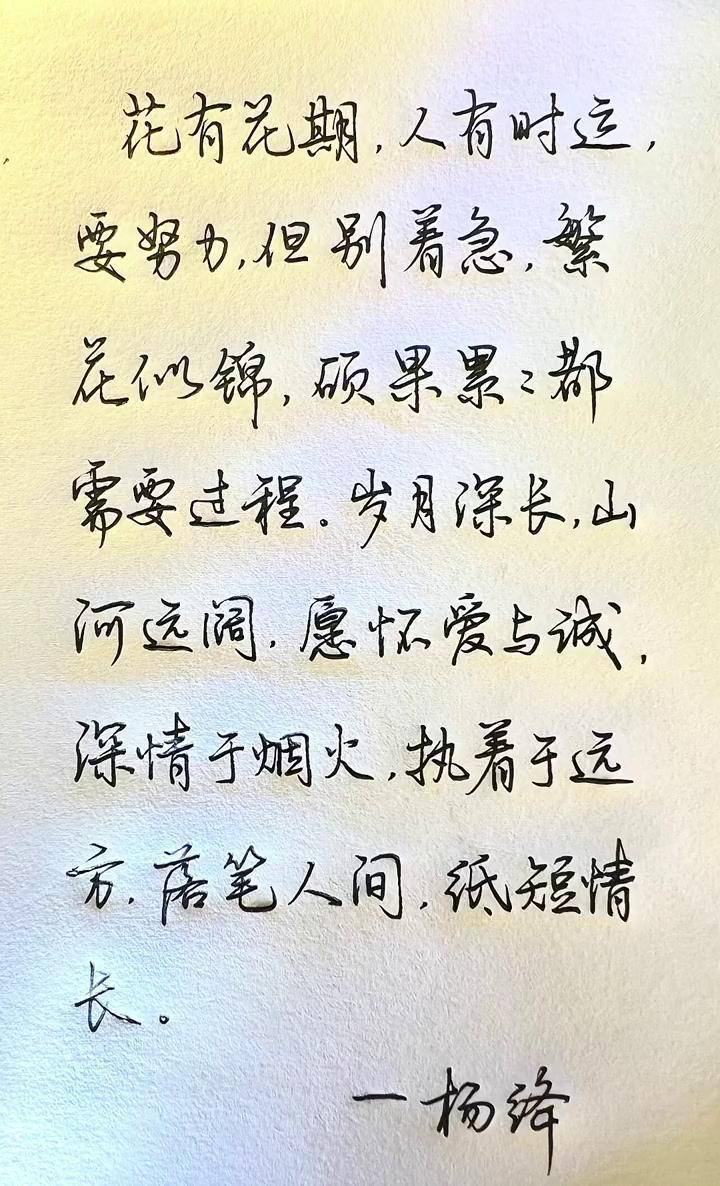 花有花期，人有时运，
要努力，但别着急，繁
花似锦，硕果累々都
需要过程。岁月深长，山
河远阔，愿怀爱与诚，
深情于烟火，执着于远
方，落笔人间，纸短情
长。
一杨绛